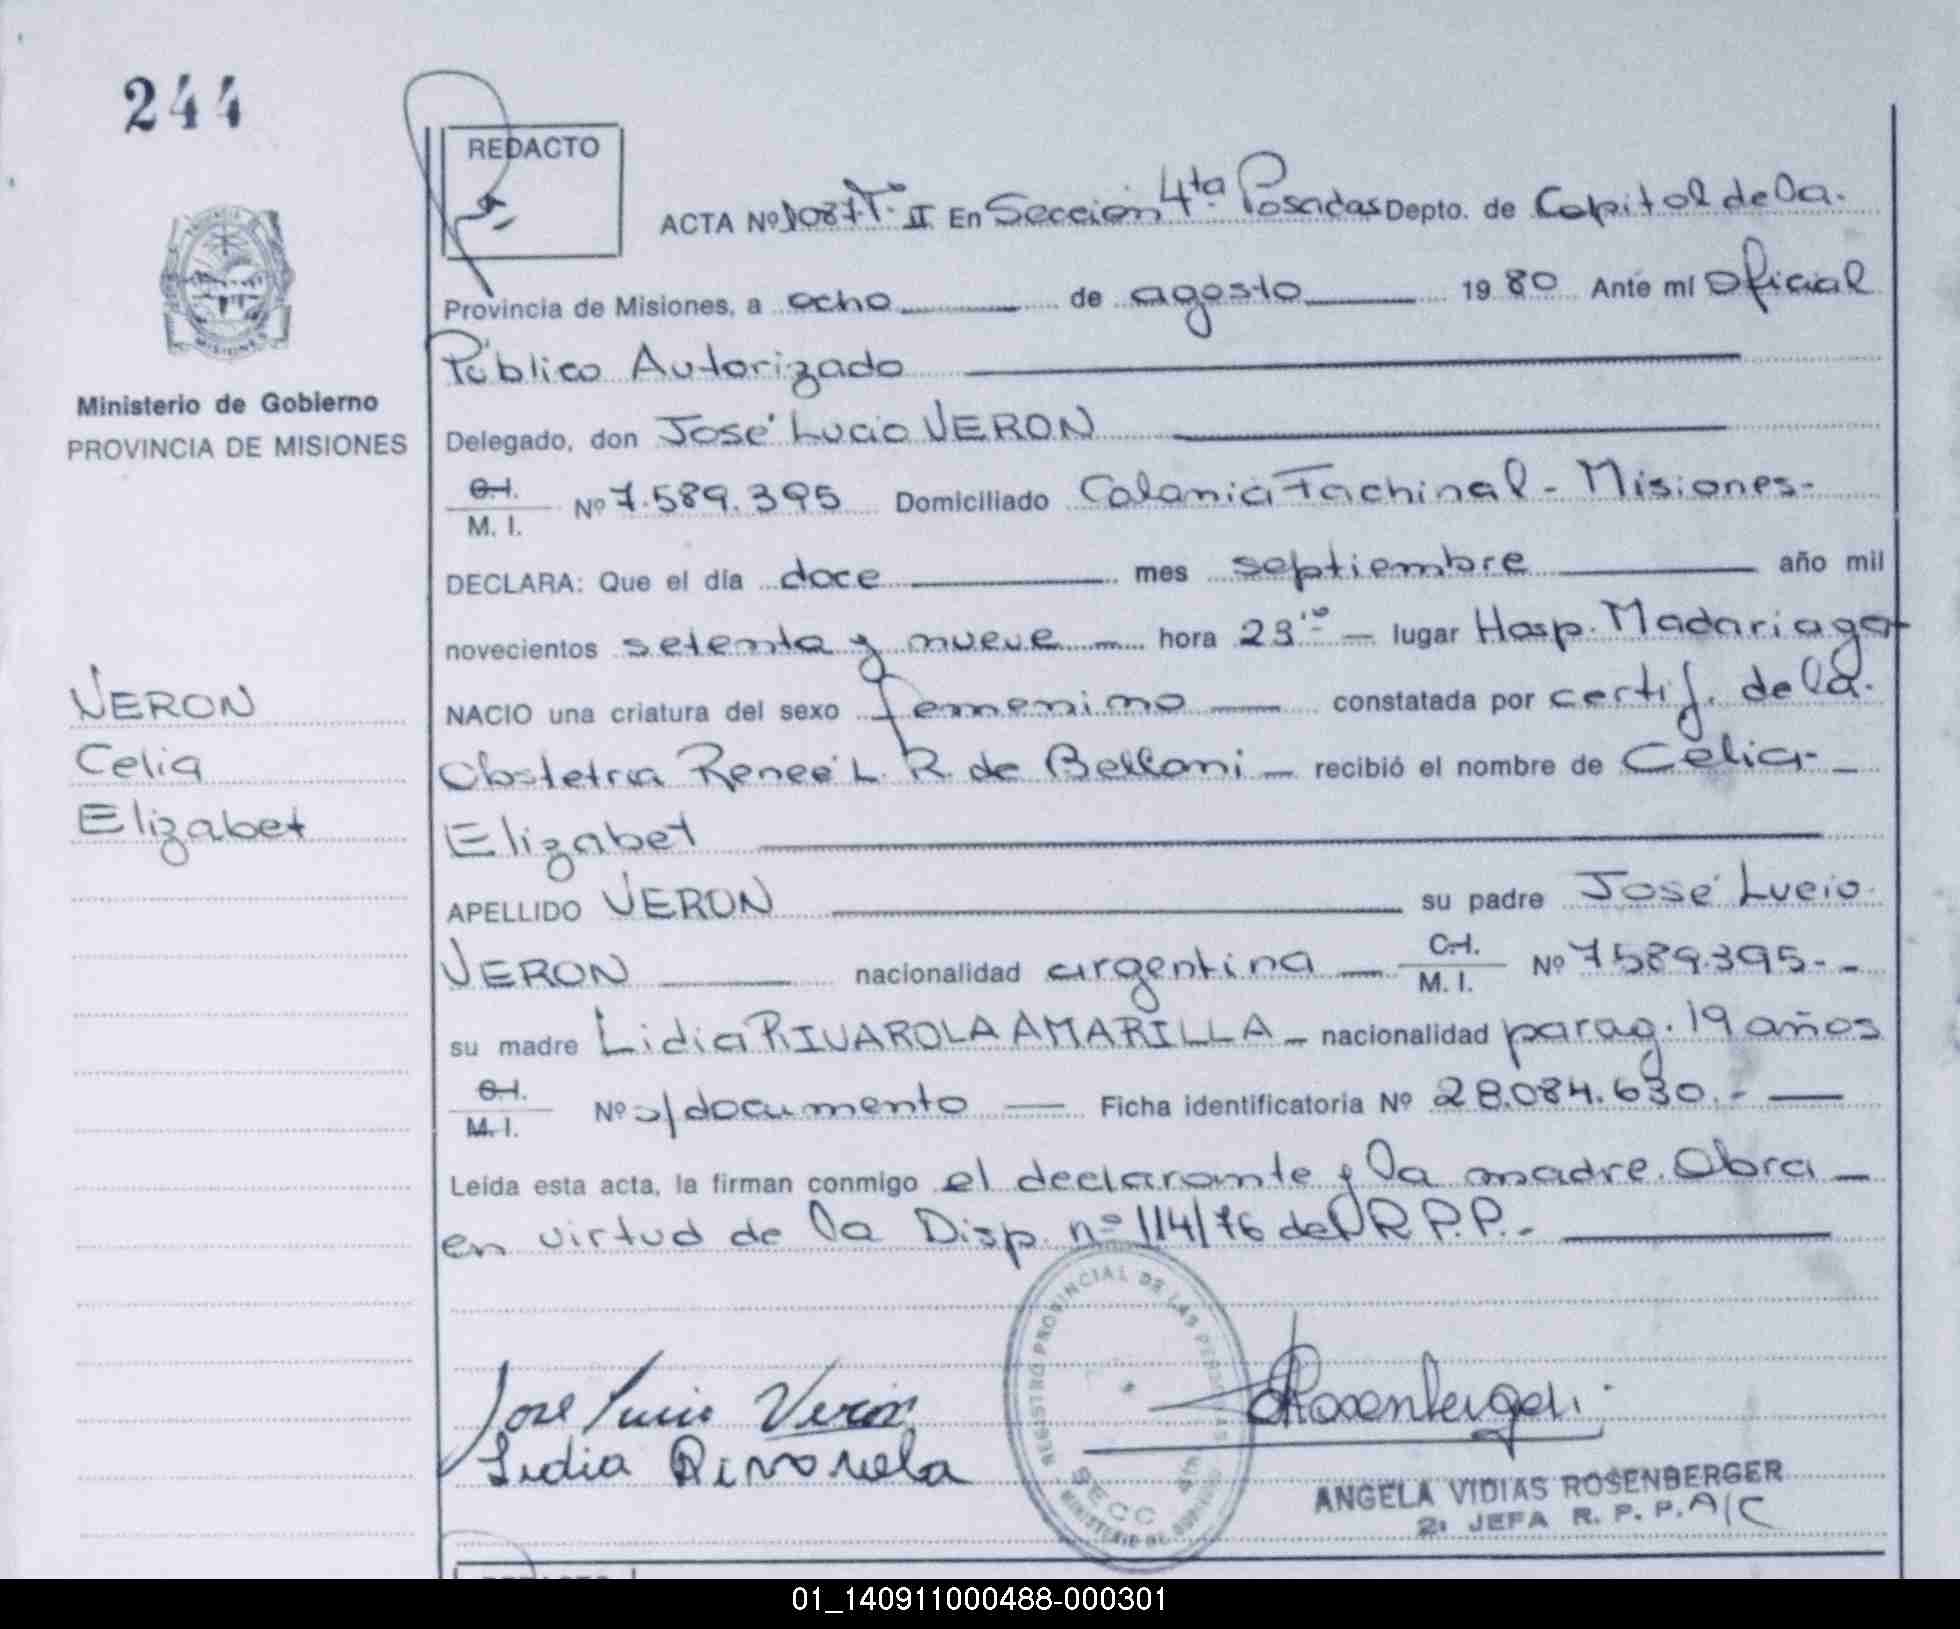 244
REDACTO
ACTA Nº 1087 T. II En Sección 4ta Posadas Depto. de Capital de la.
Provincia de Misiones, a ocho de agosto 1980 Ante mí Oficial
Público Autorizado
Ministerio de Gobierno
PROVINCIA DE MISIONES
Delegado, don José Lucio VERON
C.I. M. I. Nº 7.589.395 Domiciliado Colonia Fachinal - Misiones-
DECLARA: Que el día doce mes septiembre año mil
novecientos setenta y nueve hora 23 lugar Hosp. Madariaga
VERON
Celia
Elizabet
NACIO una criatura del sexo femenino constatada por certif. de la.
Obstetra Reneé L. R. de Belloni recibió el nombre de Celia-
Elizabet
APELLIDO VERON su padre José Lucio
VERON nacionalidad argentina C.I. M. I. Nº 7589.395--
su madre Lidia RIVAROLA AMARILLA nacionalidad parag. 19 años
C.I. M. I. Nº s/documento Ficha identificatoria Nº 28.084.630.-
Leída esta acta, la firman conmigo el declarante y la madre. Obra
en virtud de la Disp. nº 114/76 del R.P.P.-
REGISTRO PROVINCIAL DE LAS PERSONAS
SECC 4ta
MINISTERIO DE GOBIERNO
Jose Lucio Veron
Lidia Rivarola
ARosenberger
ANGELA VIDIAS ROSENBERGER
2ª JEFA R. P. P. A/C
01_140911000488-000301